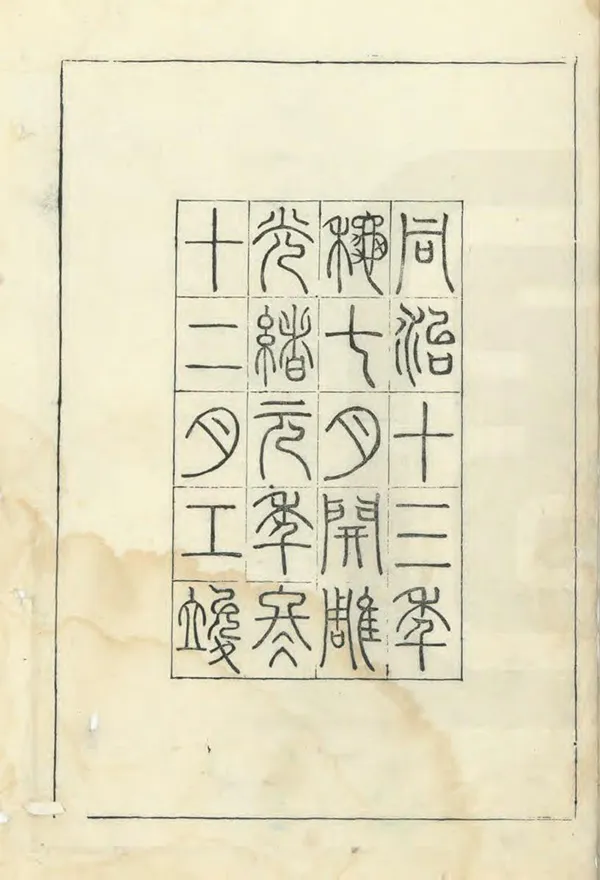 同治十三年
穐七月開雕
光緒元年冬
十二月工竣